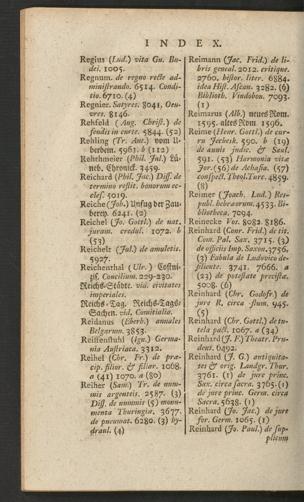 INDEX.
Regius (Lud.) vita Gu. Budei. 1005.
Regnum. de regno recte administrando. 6514. Conditio. 6710. (4)
Regnier. Satyres. 8041, Oeuvres. 8146.
Rehfeld (Aug. Christ.) de fendis in curte. 5844. (52)
Rehling (Tr. Ant.) vom Uberbein. 5961. b (112)
Rehtmeier (Phil. Jul.) Lüneb. Chronick. 3459.
Reichard (Phil. Jac.) Diss. de termino restit. bonorum eccles. 5019.
Reiche (Joh.) Unfug der Zauberey. 6241. (2)
Reichel (Jo. Gottl.) de natjuram. credul. 1072. b (53)
Reichelt (Jul.) de amuletis. 5927.
Reichenthal (Ulr.) Costnitz. Concilium. 229-230.
Reichs-Städte. vid. civitates imperiales.
Reichs-Tag. Reichs-Tags-Sachen. vid. Comitialia.
Reidanus (Everh.) annales Belgarum. 3853.
Reiffenstuhl (Ign.) Germania Austriaca. 3312.
Reihel (Chr. Fr.) de præcip. filior. & filiar. 1068. a (41) 1070. a (80)
Reiher (Sam.) Tr. de nummis argenteis. 2587. (3) Diss. de nummis (5) monumenta Thuringiæ. 3677. de pneumat. 6280. (3) hydraul. (4)
Reimann (Jac. Frid.) de libris geneal. 2012. critique. 2760. histor. liter. 6884. idea Hist. Ascan. 3282. (6) Biblioth. Vindobon. 7093. (1)
Reimarus (Alb.) neues Rom. 1595. altes Rom. 1596.
Reime (Henr. Gottl.) de curru Jechesk. 590. b (19) de annis judic. & Saul. 591. (53) Harmonia vitæ Jor. (56) de Achasia. (57) conspect. Thaos. Turc. 4859. (8)
Reimer (Joach. Lud.) Respubl. hebræorum. 4533. Bibliotheca. 7094.
Reinecke Vos. 8082. 8186.
Reinhard (Conr. Frid.) de tit. Com. Pal. Sax. 3715. (3) de officiis Imp. Saxon. 3756. (3) Fabula de Ludovico desiliente. 3741. 7666. a (22) de potestate previsa. 5008. (6)
Reinhard (Chr. Godofr.) de jure R. circa flum. 945. (5)
Reinhard (Chr. Gottl.) de tutela pact. 1067. a (34)
Reinhard (J. F.) Theatr. Prudent. 6492.
Reinhard (J. G.) antiquitates & orig. Landgr. Thur. 3761. (1) de jure princ. Sax. circa sacra. 3765. (1) de jure princ. Germ. circa Sacra. 5638. (1)
Reinhard (Jo. Jac.) de jure for. Germ. 1065. (1)
Reinhard (Jo. Paul.) de supplicum